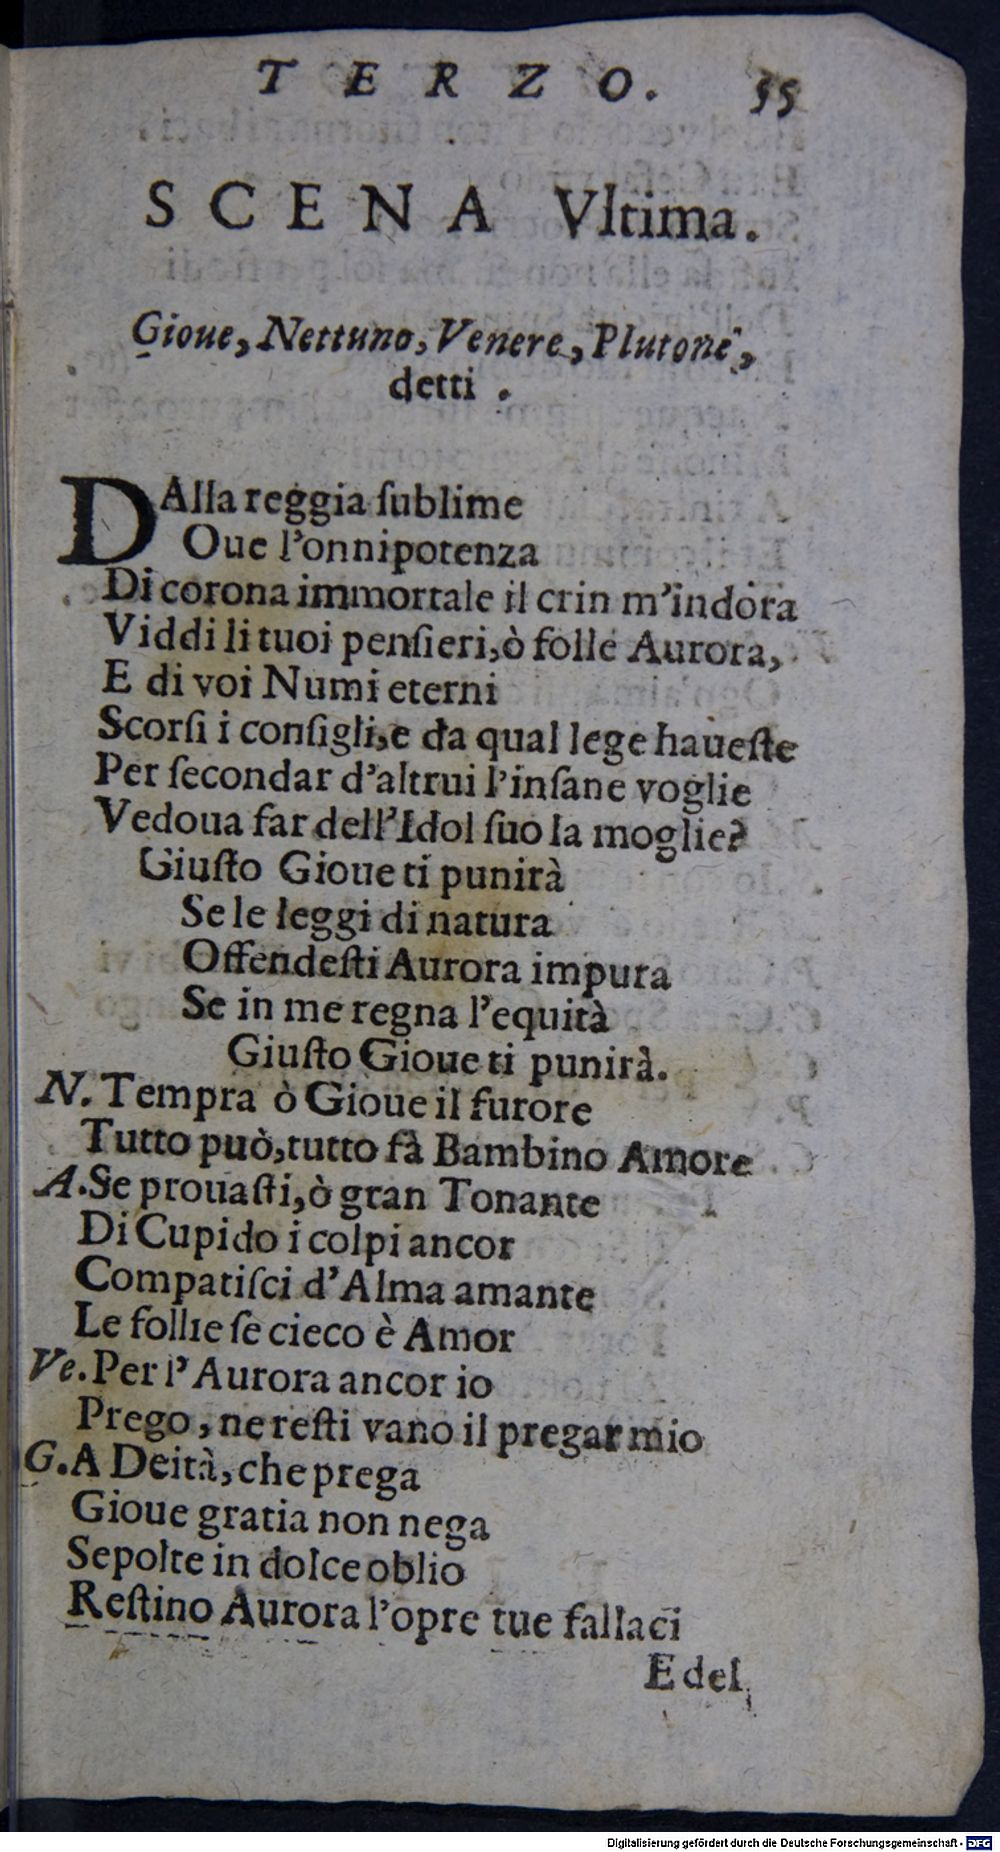 TERZO. 55
SCENA Vltima.
Gioue, Nettuno, Venere, Plutone,
detti .
DAlla reggia ſublime
Oue l'onnipotenza
Di corona immortale il crin m'indora
Viddi li tuoi penſieri, ò folle Aurora,
E di voi Numi eterni
Scorſi i conſigli, e da qual lege haueſte
Per ſecondar d'altrui l'inſane voglie
Vedoua far dell'Idol ſuo la moglie?
Giuſto Gioue ti punirà
Se le leggi di natura
Offendeſti Aurora impura
Se in me regna l'equità
Giuſto Gioue ti punirà.
N. Tempra ò Gioue il furore
Tutto può, tutto fà Bambino Amore
A. Se prouaſti, ò gran Tonante
Di Cupido i colpi ancor
Compatiſci d'Alma amante
Le follie ſe cieco è Amor
Ve. Per l'Aurora ancor io
Prego, ne reſti vano il pregar mio
G. A Deità, che prega
Gioue gratia non nega
Sepolte in dolce oblio
Reſtino Aurora l'opre tue fallaci
E del
Digitalisierung gefördert durch die Deutsche Forschungsgemeinschaft - DFG